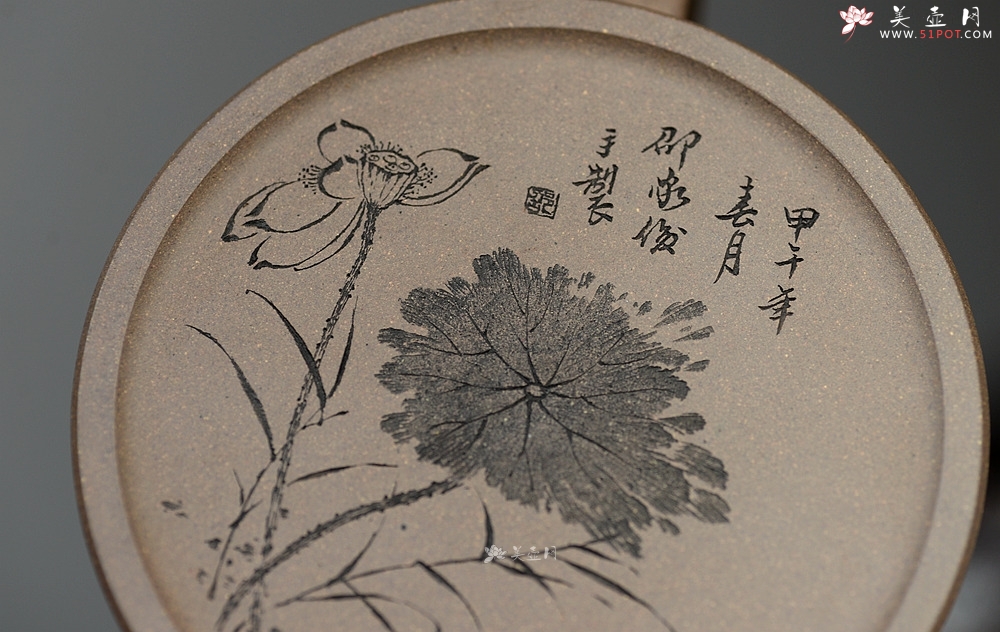 甲午年
春月
邵家俊
手製
美壶网
WWW.51POT.COM
美壶网